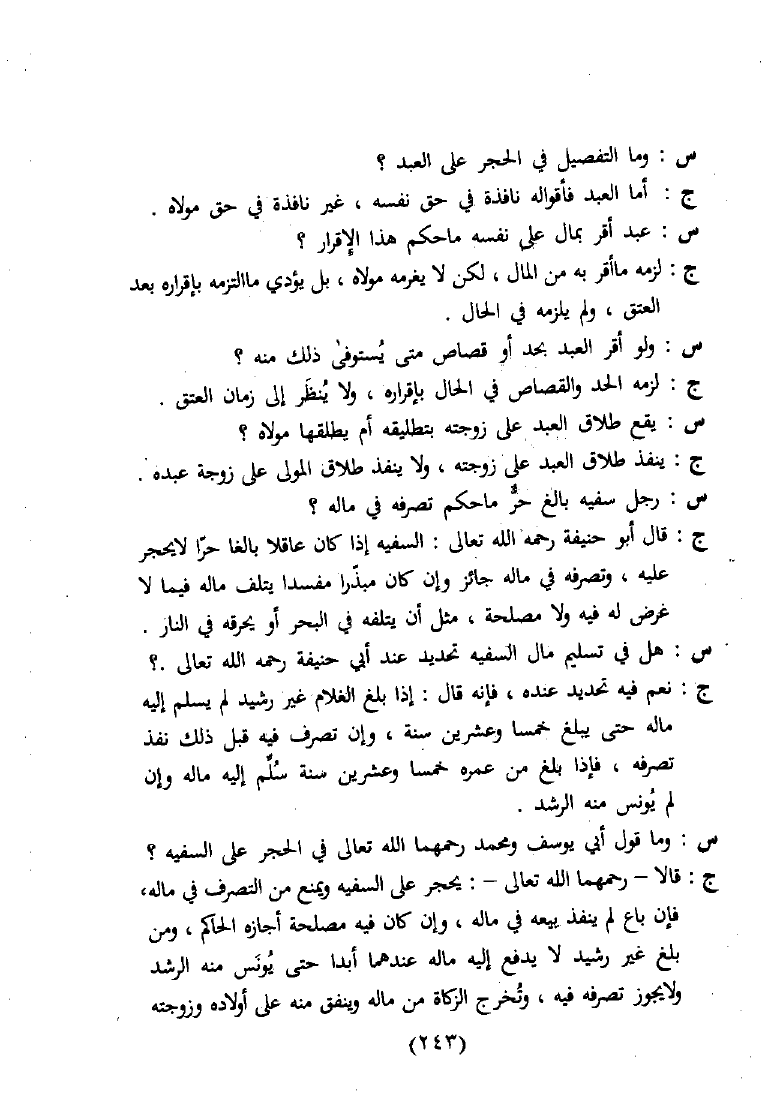 س : وما التفصيل في الحجر على العبد ؟
ج : أما العبد فأقواله نافذة في حق نفسه ، غير نافذة في حق مولاه .
س : عبد أقر بمال على نفسه ماحكم هذا الإقرار ؟
ج : لزمه ماأقر به من المال ، لكن لا يغرمه مولاه ، بل يؤدي ماالتزمه بإقراره بعد
العتق ، ولم يلزمه في الحال .
س : ولو أقر العبد بحد أو قصاص متى يُستوفىٰ ذلك منه ؟
ج : لزمه الحد والقصاص في الحال بإقراره ، ولا يُنظَر إلى زمان العتق .
س : يقع طلاق العبد على زوجته بتطليقه أم يطلقها مولاه ؟
ج : ينفذ طلاق العبد على زوجته ، ولا ينفذ طلاق المولى على زوجة عبده .
س : رجل سفيه بالغ حرٌّ ماحكم تصرفه في ماله ؟
ج : قال أبو حنيفة رحمه الله تعالى : السفيه إذا كان عاقلا بالغا حرّا لايحجر
عليه ، وتصرفه في ماله جائز وإن كان مبذّرا مفسدا يتلف ماله فيما لا
غرض له فيه ولا مصلحة ، مثل أن يتلفه في البحر أو يحرقه في النار .
س : هل في تسليم مال السفيه تحديد عند أبي حنيفة رحمه الله تعالى .؟
ج : نعم فيه تحديد عنده ، فإنه قال : إذا بلغ الغلام غير رشيد لم يسلم إليه
ماله حتى يبلغ خمسا وعشرين سنة ، وإن تصرف فيه قبل ذلك نفذ
تصرفه ، فإذا بلغ من عمره خمسا وعشرين سنة سُلِّم إليه ماله وإن
لم يُونس منه الرشد .
س : وما قول أبي يوسف ومحمد رحمهما الله تعالى في الحجر على السفيه ؟
ج : قالا – رحمهما الله تعالى – : يحجر على السفيه ويمنع من التصرف في ماله،
فإن باع لم ينفذ بيعه في ماله ، وإن كان فيه مصلحة أجازه الحاكم ، ومن
بلغ غير رشيد لا يدفع إليه ماله عندهما أبدا حتى يُونَس منه الرشد
ولايجوز تصرفه فيه ، وتُخرج الزكاة من ماله وينفق منه على أولاده وزوجته
(٢٤٣)